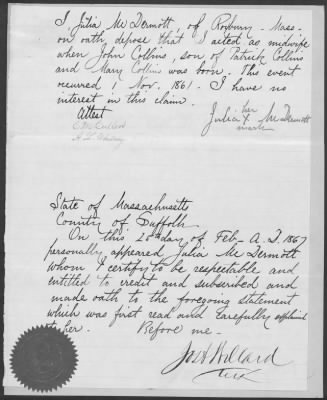 I Julia McDermott of Roxbury - Mass -
on oath, depose that I acted as midwife
when John Collins, son of Patrick Collins
and Mary Collins was born. This event
occurred 1 Nov. 1861. I have no
interest in this claim.
Attest
Julia her X mark McDermott
State of Massachusetts
County of Suffolk
On this 28 day of Feb- A.D. 1867
personally appeared Julia McDermott
whom I certify to be respectable and
entitled to credit and subscribed and
made oath to the foregoing statement
which was first read and carefully explained
to her. Before me -
Jos A Willard
Clerk